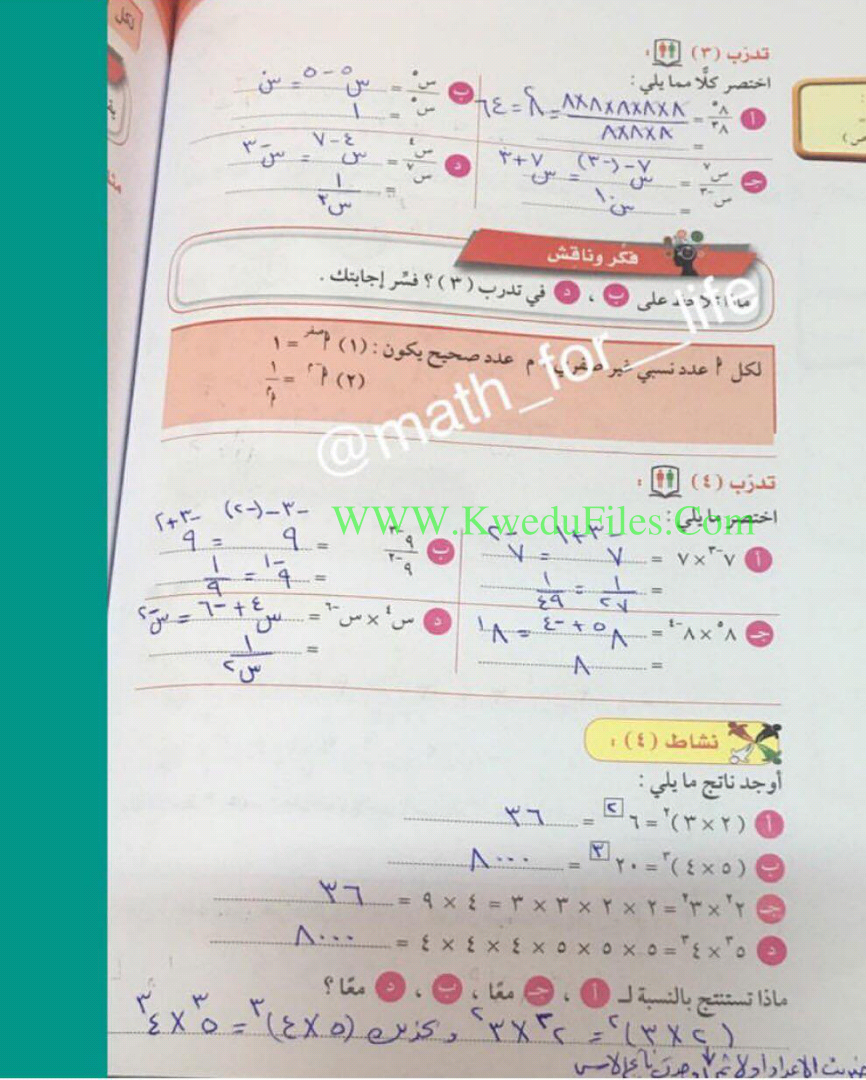 تدرّب (٣) :
اختصر كلًّا مما يلي :
أ ٨^٥ / ٨^٣ = ٨×٨×٨×٨×٨ / ٨×٨×٨ = ٨^٢ = ٦٤
=
ب س^٥ / س^٥ = س^(٥-٥) = س^٠
= ١
جـ س^٧ / س^-٣ = س^(٧-(-٣)) = س^(٧+٣)
= س^١٠
د س^٤ / س^٧ = س^(٤-٧) = س^-٣
= ١ / س^٣
فكّر وناقِش
ماذا تلاحظ على ب ، د في تدرب (٣) ؟ فسِّر إجابتك .
لكل أ عدد نسبي غير صفري ، م عدد صحيح يكون : (١) أ^صفر = ١
(٢) أ^-م = ١ / أ^م
@math_for__life
تدرّب (٤) :
WWW.KweduFiles.Com
اختصر ما يلي :
أ ٧^-٣ × ٧ = ٧^(-٣+١) = ٧^-٢
= ١ / ٧^٢ = ١ / ٤٩
ب ٩^-٣ / ٩^-٢ = ٩^(-٣-(-٢)) = ٩^(-٣+٢)
= ٩^-١ = ١ / ٩
جـ ٨^٥ × ٨^-٤ = ٨^(٥+-٤) = ٨^١
= ٨
د س^٤ × س^-٦ = س^(٤+-٦) = س^-٢
= ١ / س^٢
نشاط (٤) :
أوجد ناتج ما يلي :
أ (٢ × ٣)^٢ = ٦^٢ = ٣٦
ب (٥ × ٤)^٣ = ٢٠^٣ = ٨٠٠٠
جـ ٢^٢ × ٣^٢ = ٢ × ٢ × ٣ × ٣ = ٤ × ٩ = ٣٦
د ٥^٣ × ٤^٣ = ٥ × ٥ × ٥ × ٤ × ٤ × ٤ = ٨٠٠٠
ماذا تستنتج بالنسبة لـ أ ، جـ معًا ، ب ، د معًا ؟
(٢×٣)^٢ = ٢^٢×٣^٢ وكذلك (٥×٤)^٣ = ٥^٣×٤^٣
الاعداد اولا ثم
لكل